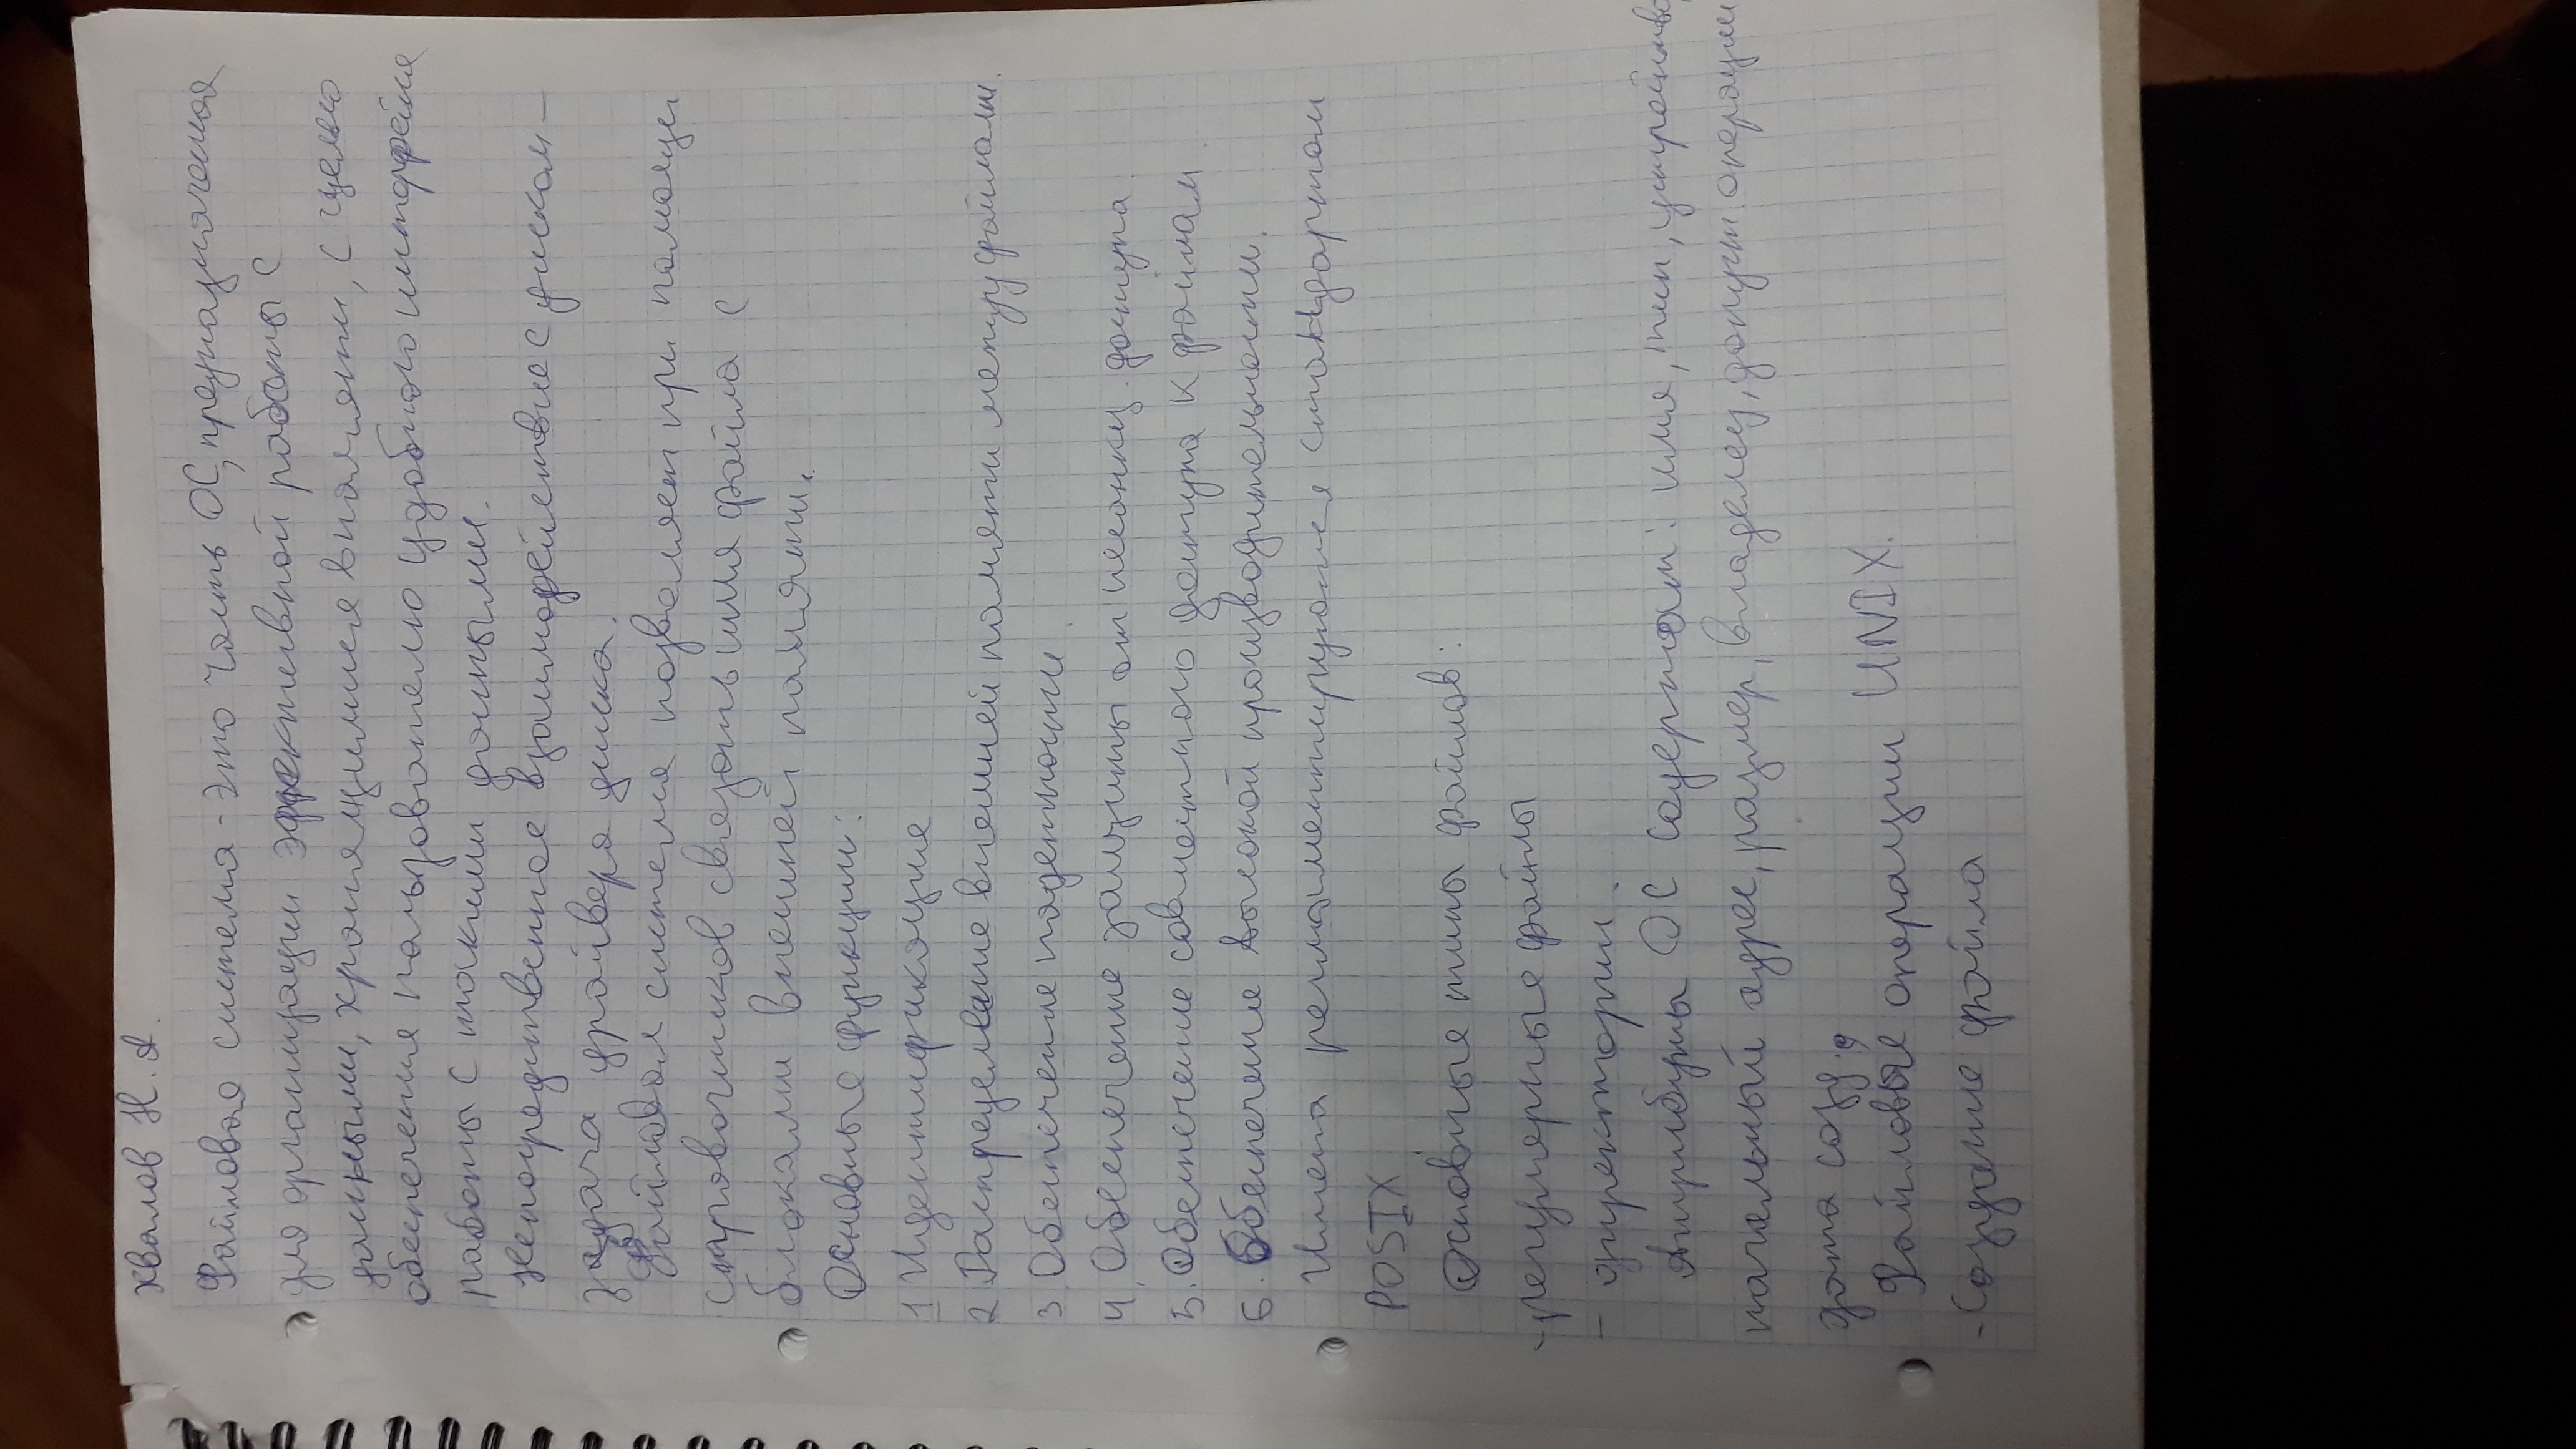 Хвалов Н. А.
Файловая система - это часть ОС, предназначенная
для организации эффективной работы с
данными, хранящимися в памяти, с целью
обеспечения пользователю удобного интерфейса
работы с такими данными.
Непосредственное взаимодействие с диском –
задача драйвера диска.
Файловая система позволяет при помощи
справочников связать имя файла с
блоками внешней памяти.
Основные функции:
1 Идентификация
2 Распределение внешней памяти между файлами.
3 Обеспечение надежности.
4. Обеспечение защиты от несанкц. доступа.
5. Обеспечение совместного доступа к файлам.
6. Обеспечение высокой производительности.
Имена регламентируются стандартом
POSIX.
Основные типы файлов:
- регулярные файлы
- директории.
Атрибуты ОС содержат: имя, тип, устройство,
начальный адрес, размер, владелец, допуст. операции
дата созд.
Файловые операции UNIX.
- Создание файла